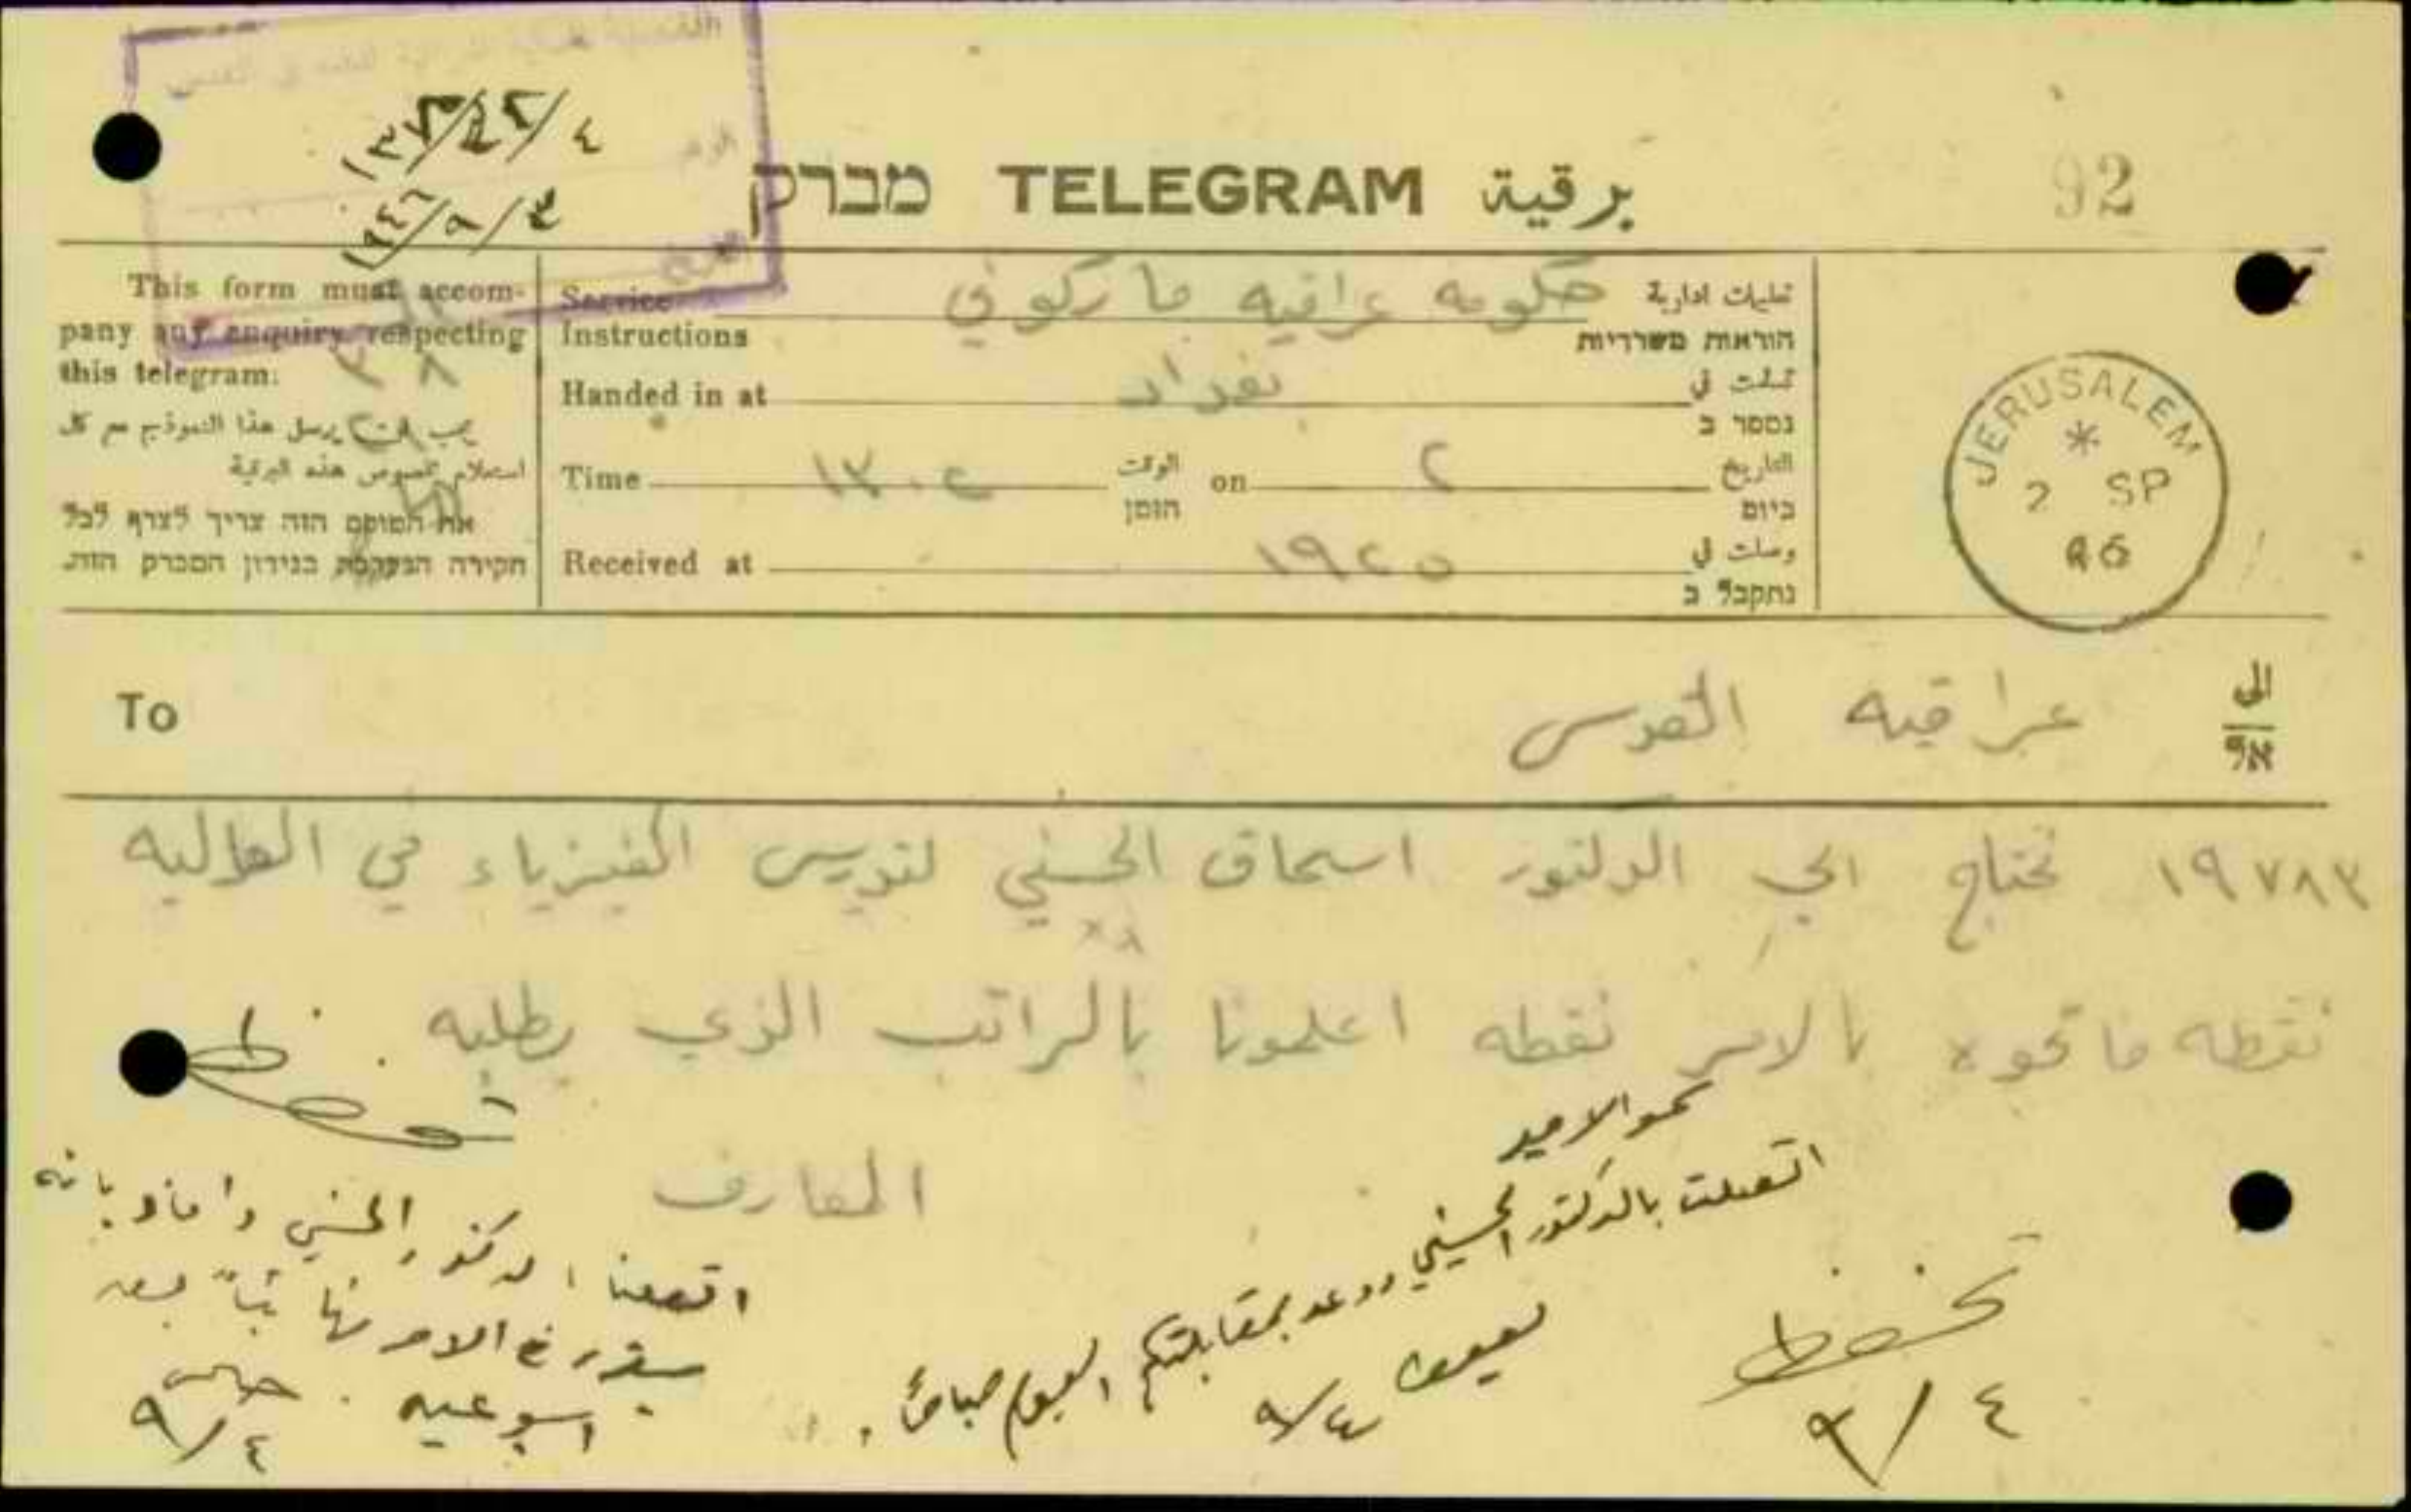 القنصلية العراقية في القدس
الرقم
التاريخ
٤/٢
١٩٤٦/٩/٣
برقية TELEGRAM מברק
92
This form must accom-
pany any enquiry respecting
this telegram.
يجب ان يرسل هذا النموذج مع كل
استعلام بخصوص هذه البرقية
את הטופס הזה צריך לצרף לכל
חקירה הנעשית בנידון המברק הזה.
Service
Instructions
حكومه عراقيه ماركوني
تعليمات ادارية
הוראות משרדיות
Handed in at بغداد سلمت في
נמסר ב
Time ١٣٠٤ الوقت on ٢ التاريخ
הזמן ביום
Received at ١٩٢٥ وصلت في
נתקבל ב
JERUSALEM
2 SP
46
To عراقيه القدس الى
אל
١٩٧٨٣ نحتاج الى الدكتور اسحاق الحسيني لتدريس الفيزياء في العاليه
نقطه فاتحوه بالامر نقطه اعلمونا بالراتب الذي يطلبه
المعارف
سمو الامير
اتصلت بالدكتور الحسيني ووعد بمقابلتكم اليوم صباحاً.
٩/٤
تحفظ
٩/٤
اتصلنا الدكتور الحسيني وافاد بانه
سيقرر في الامر نهائياً بعد
اسبوعين.
٩/٤